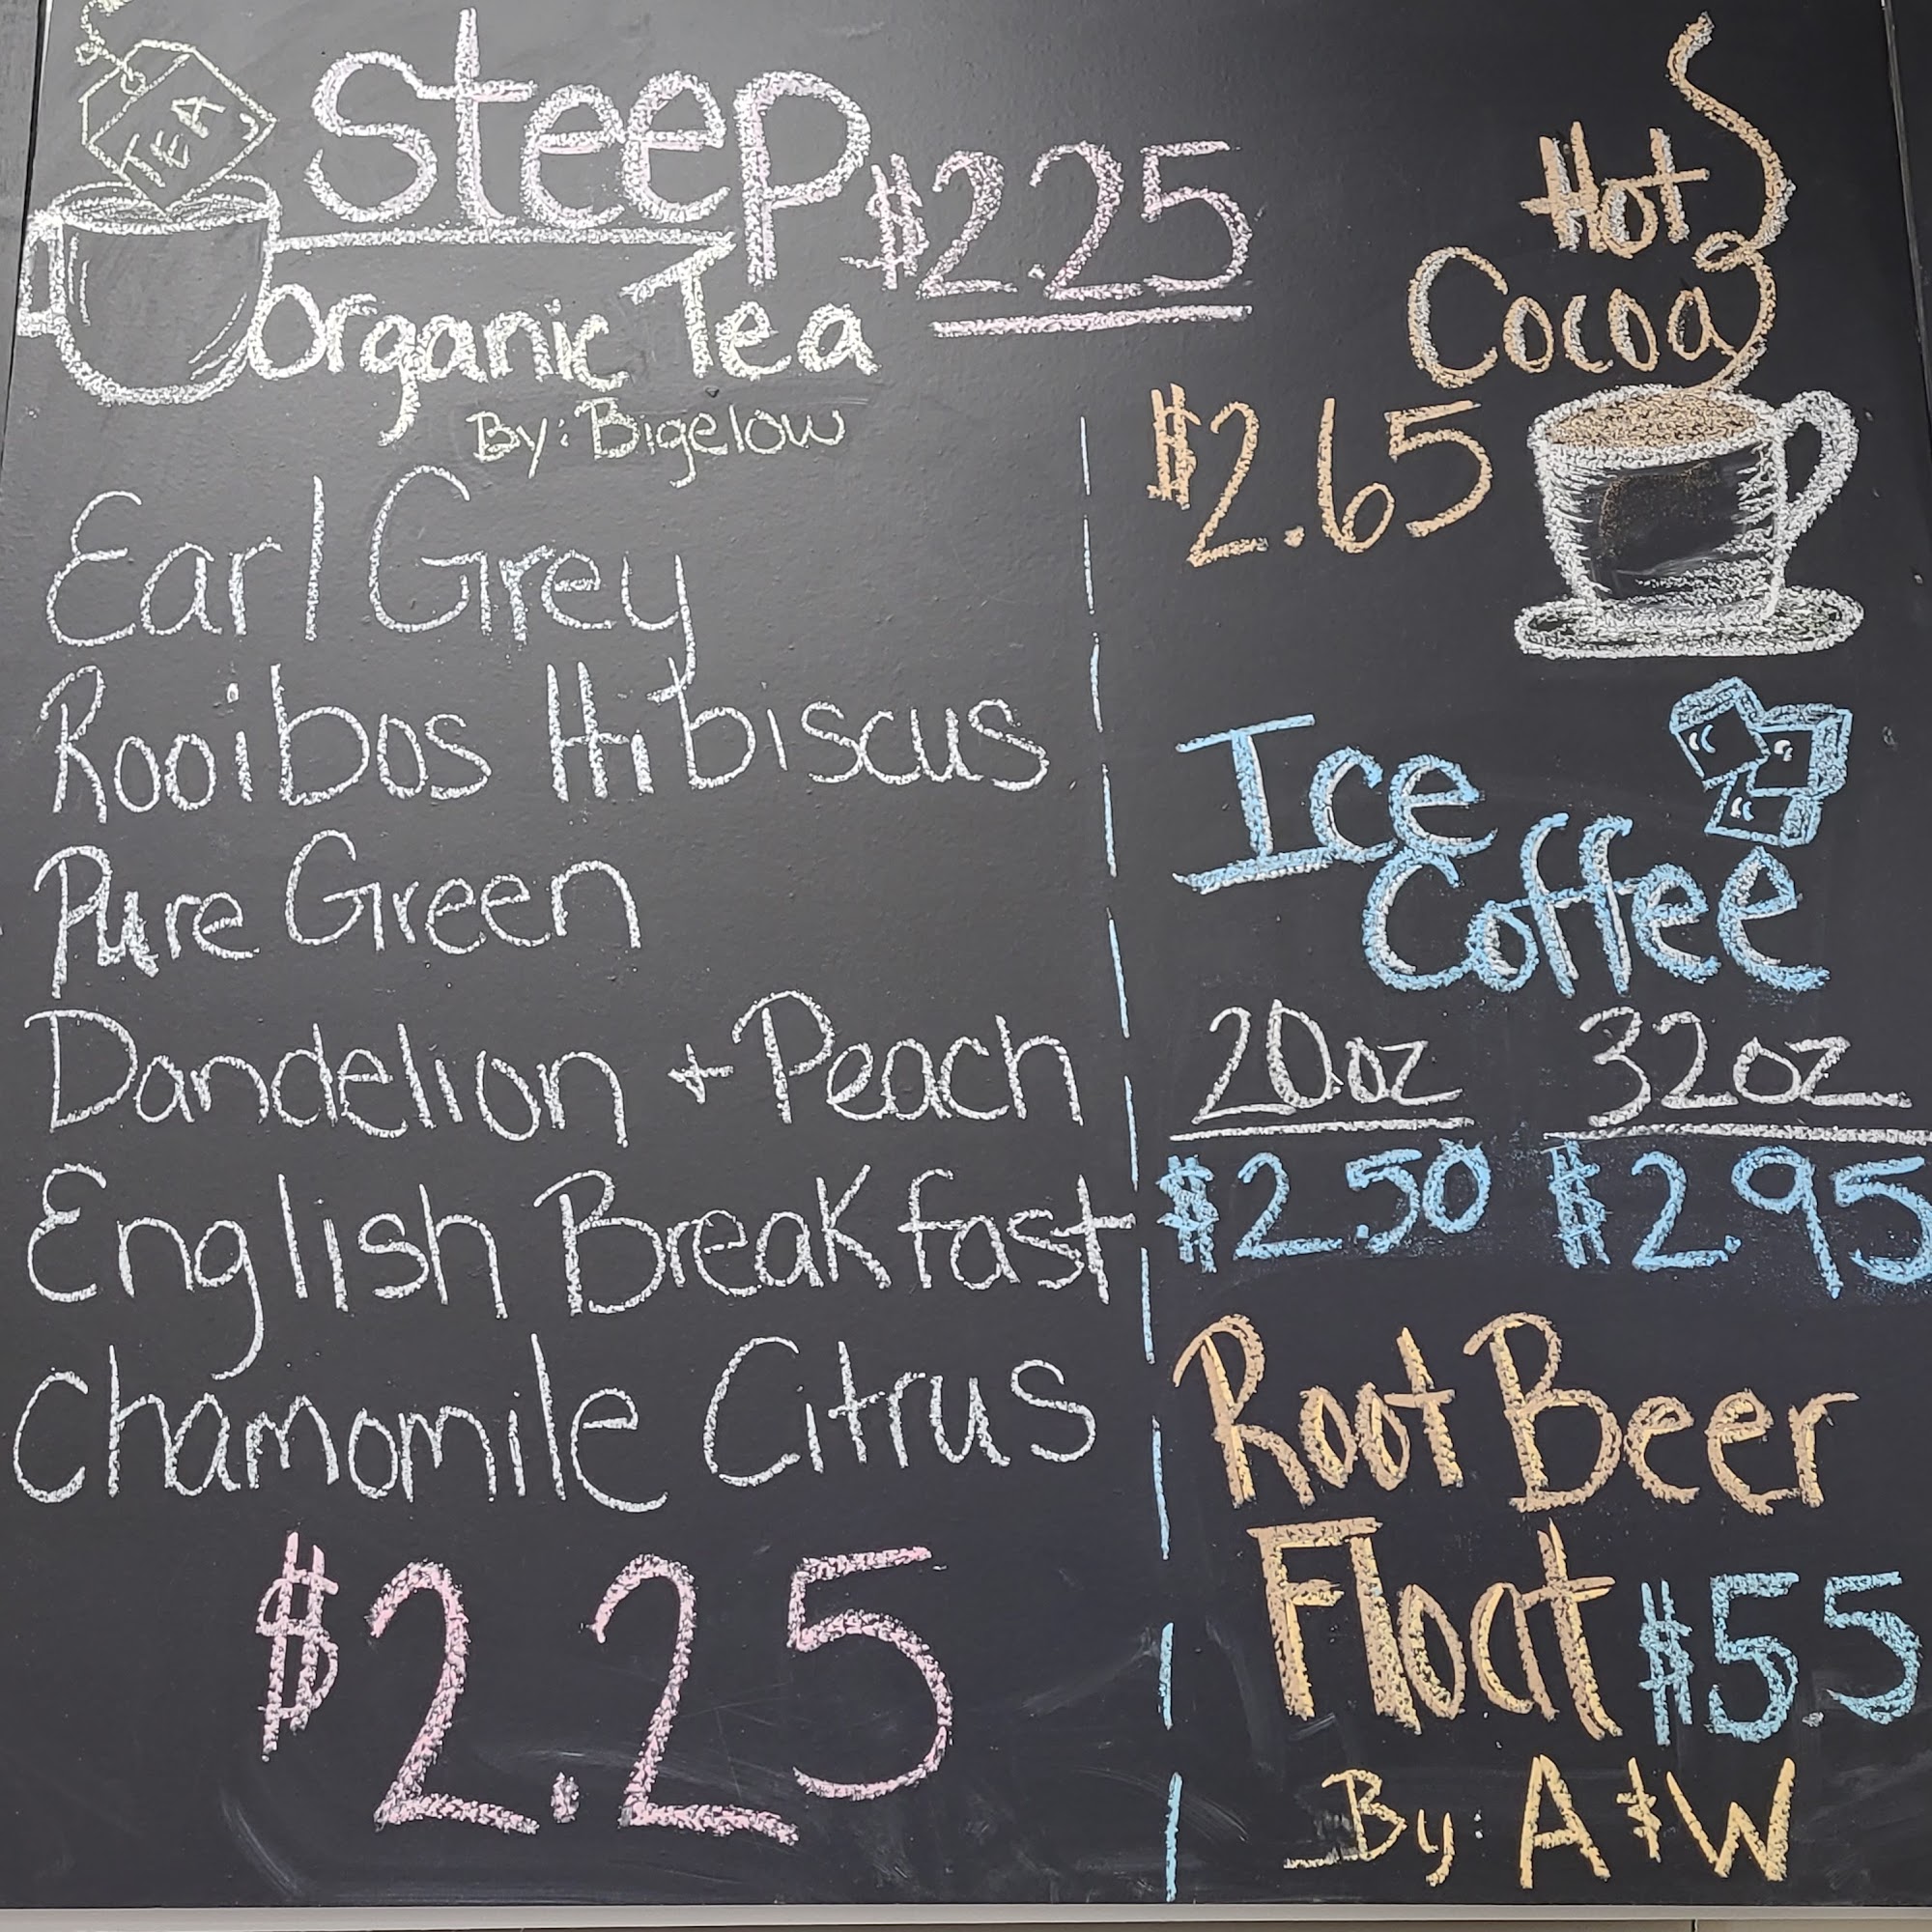 TEA
Steep $2.25
Organic Tea
By: Bigelow
Earl Grey
Rooibos Hibiscus
Pure Green
Dandelion + Peach
English Breakfast
Chamomile Citrus
$2.25
Hot
Cocoa
$2.65
Ice
Coffee
20oz 32oz
$2.50 $2.95
Root Beer
Float $5.5
By: A & W